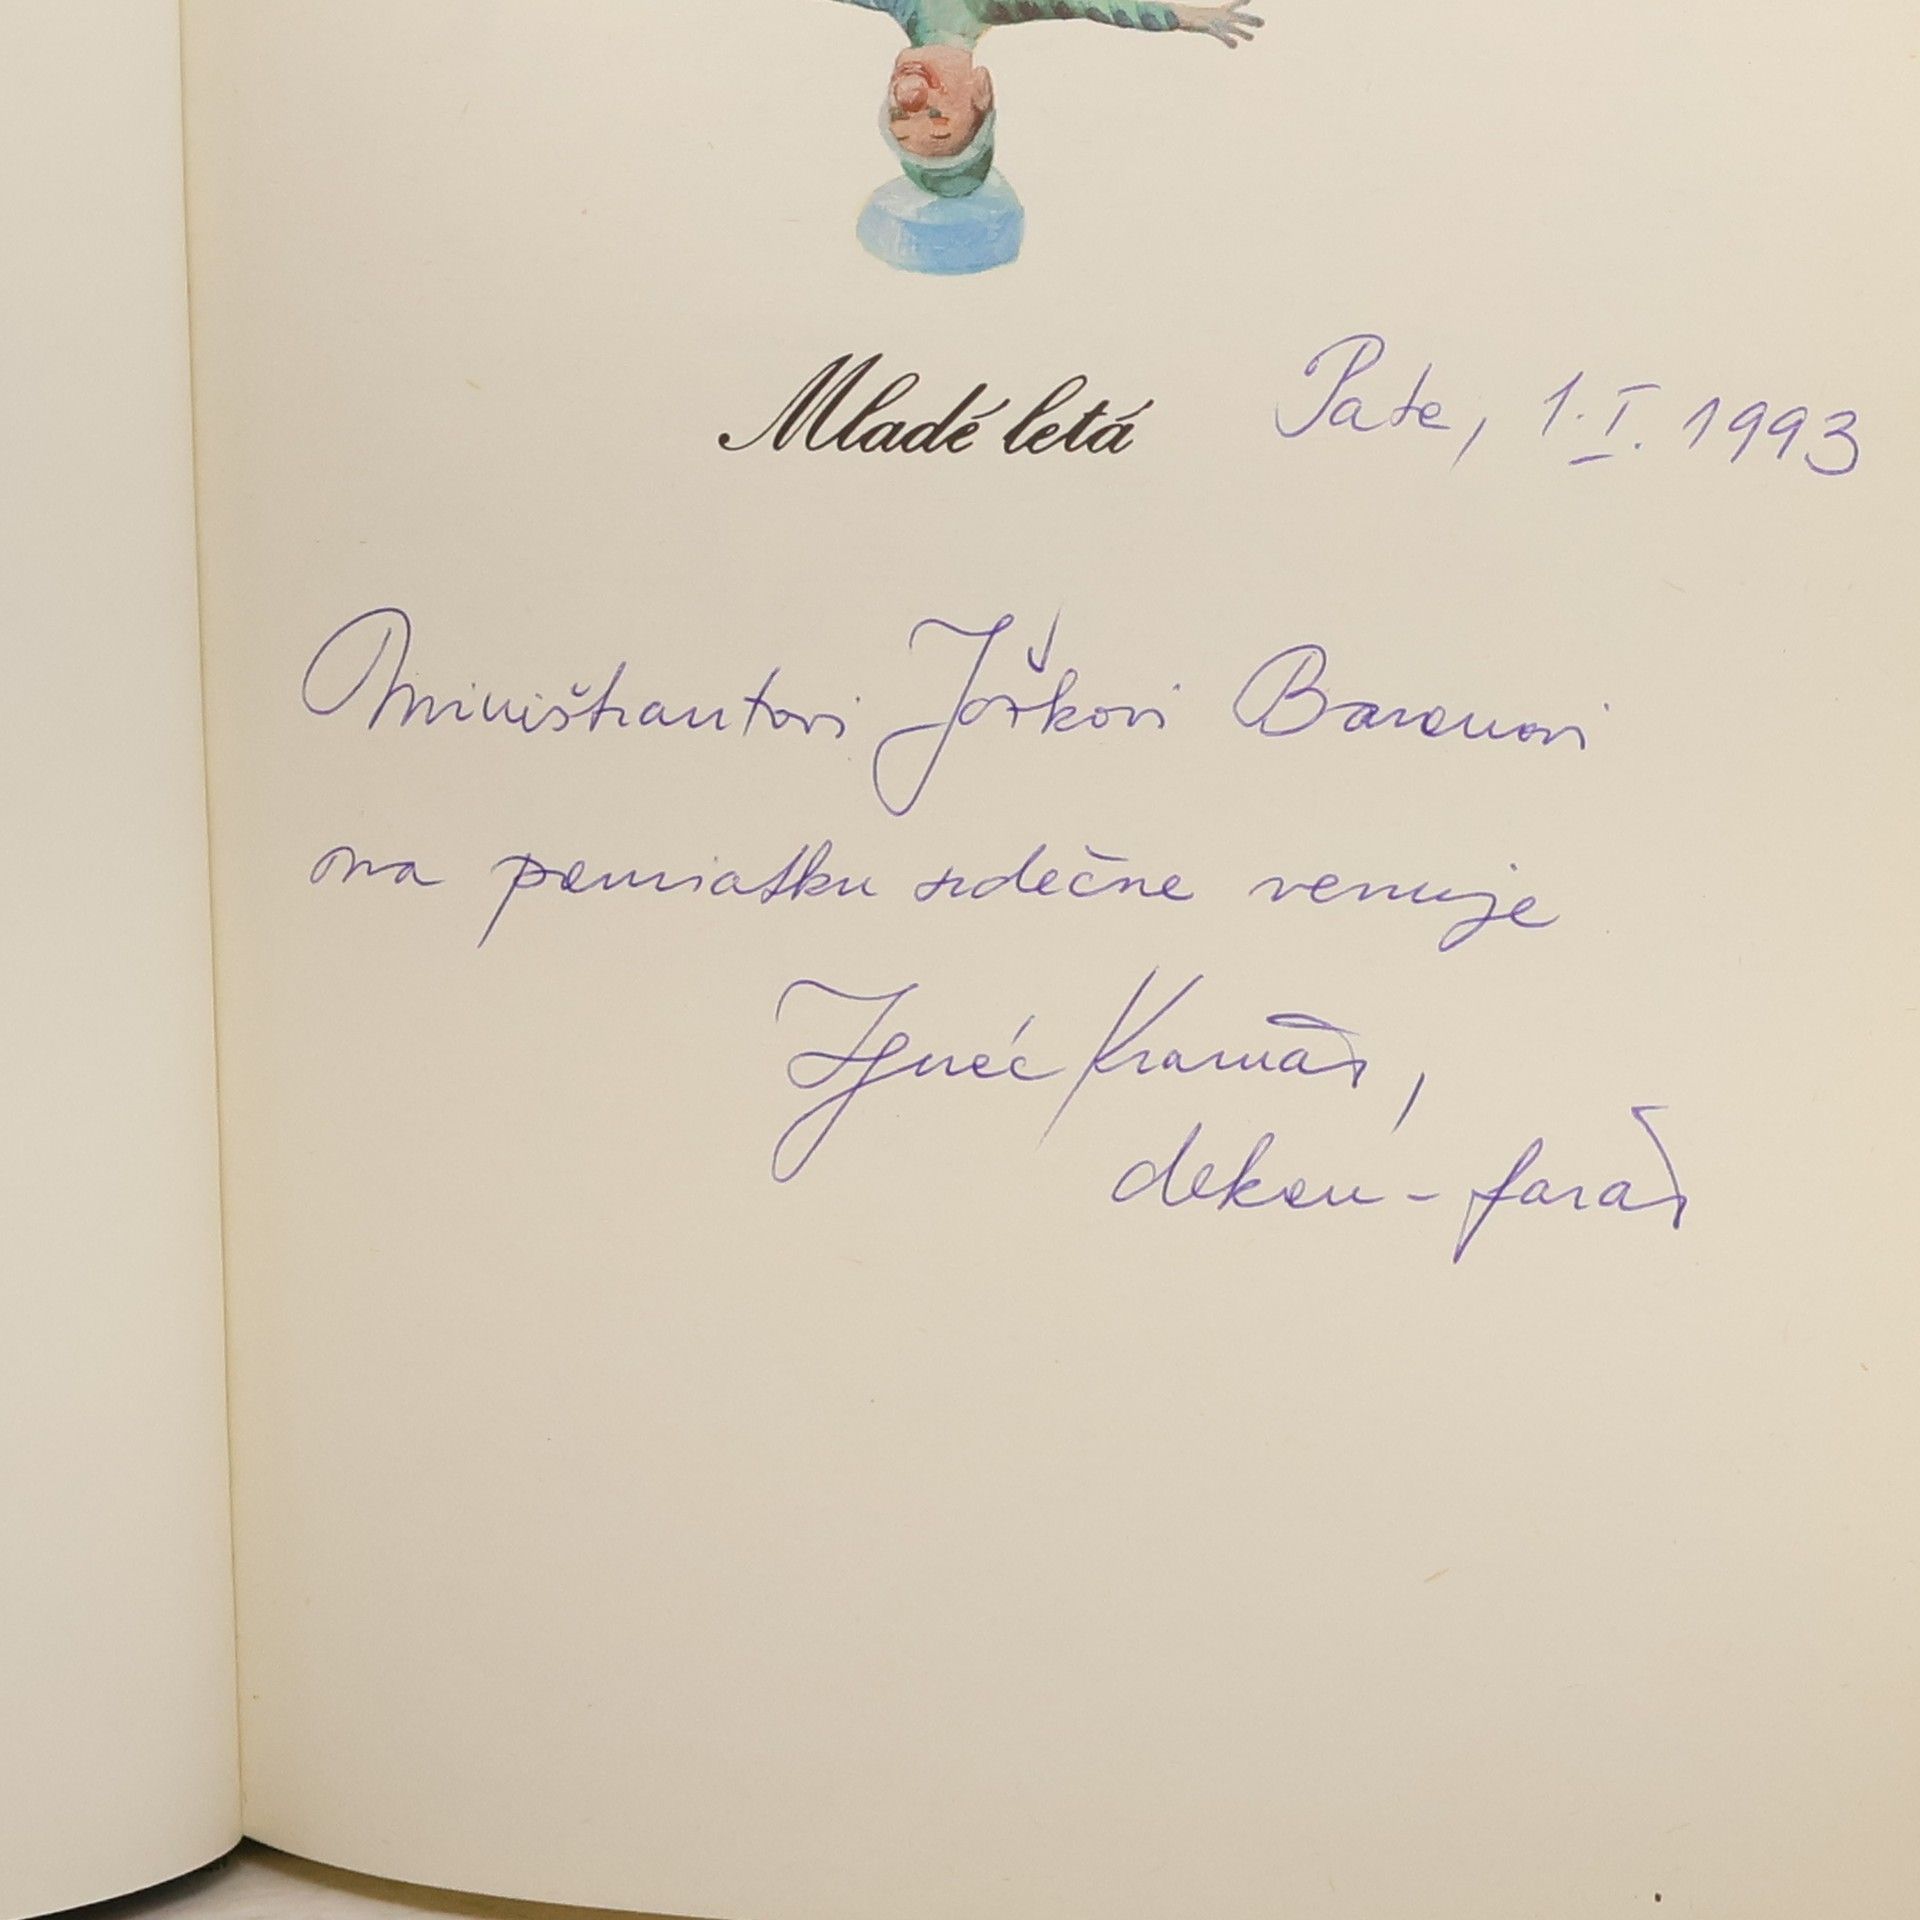 Mladé letá
Pate, 1. I. 1993
Miništrantovi Joškovi Baranovi
na pamiatku srdečne venuje
Ignác Kramár,
dekan - farár